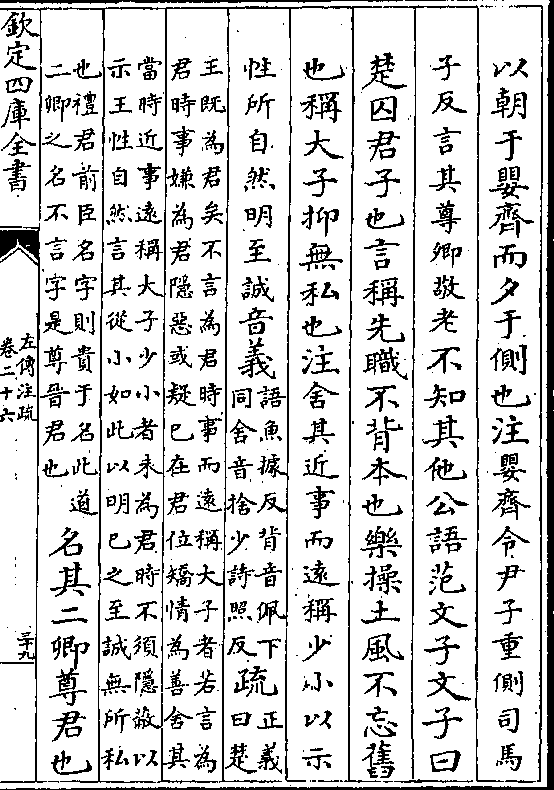 以朝于嬰齊而夕于側也注嬰齊令尹子重側司馬
子反言其尊卿敬老不知其他公語范文子文子曰
楚囚君子也言稱先職不背本也樂操土風不忘舊
也稱大子抑無私也注舍其近事而遠稱少小以示
性所自然明至誠音義
語魚據反背音佩下
同舍音捨少詩照反
疏
正義
曰楚
王既為君矣不言為君時事而遠稱大子者若言為
君時事嫌為君隱惡或疑已在君位矯情為善舍其
當時近事遠稱大子少小者未為君時不須隱蔽以
示王性自然言其從小如此以明已之至誠無所私
也禮君前臣名字則貴于名此道
二卿之名不言字是尊晉君也
名其二卿尊君也
欽定四庫全書
左傳注疏
卷二十六